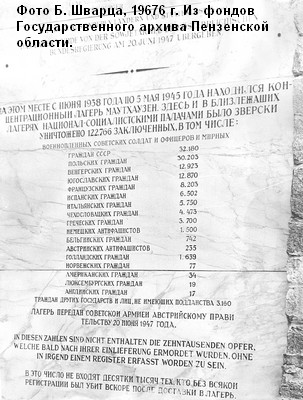 Фото Б. Шварца, 19676 г. Из фондов
Государственного архива Пензенской
области.
VON DER SOWJET
BUNDESREGIERUNG AM 20. JUNI 1947 ÜBERGEBEN
НА ЭТОМ МЕСТЕ С ИЮНЯ 1938 ГОДА ПО 5 МАЯ 1945 ГОДА НАХОДИЛСЯ КОН-
ЦЕНТРАЦИОННЫЙ ЛАГЕРЬ МАУТХАУЗЕН. ЗДЕСЬ И В БЛИЗЛЕЖАЩИХ
ЛАГЕРЯХ НАЦИОНАЛ-СОЦИАЛИСТСКИМИ ПАЛАЧАМИ БЫЛО ЗВЕРСКИ
УНИЧТОЖЕНО 122766 ЗАКЛЮЧЕННЫХ, В ТОМ ЧИСЛЕ:
ВОЕННОПЛЕННЫХ СОВЕТСКИХ СОЛДАТ И ОФИЦЕРОВ И МИРНЫХ
ГРАЖДАН СССР 32.180
ПОЛЬСКИХ ГРАЖДАН 30.203
ВЕНГЕРСКИХ ГРАЖДАН 12.923
ЮГОСЛАВСКИХ ГРАЖДАН 12.870
ФРАНЦУЗСКИХ ГРАЖДАН 8.203
ИСПАНСКИХ ГРАЖДАН 6.502
ИТАЛЬЯНСКИХ ГРАЖДАН 5.750
ЧЕХОСЛОВАЦКИХ ГРАЖДАН 4.473
ГРЕЧЕСКИХ ГРАЖДАН 3.700
НЕМЕЦКИХ АНТИФАШИСТОВ 1.500
БЕЛЬГИЙСКИХ ГРАЖДАН 742
АВСТРИЙСКИХ АНТИФАШИСТОВ 235
ГОЛЛАНДСКИХ ГРАЖДАН 1.639
НОРВЕЖСКИХ ГРАЖДАН 77
АМЕРИКАНСКИХ ГРАЖДАН 34
ЛЮКСЕМБУРГСКИХ ГРАЖДАН 19
АНГЛИЙСКИХ ГРАЖДАН 17
ГРАЖДАН ДРУГИХ ГОСУДАРСТВ И ЛИЦ, НЕ ИМЕЮЩИХ ПОДДАНСТВА 3.160
ЛАГЕРЬ ПЕРЕДАН СОВЕТСКОЙ АРМИЕЙ АВСТРИЙСКОМУ ПРАВИ-
ТЕЛЬСТВУ 20 ИЮНЯ 1947 ГОДА.
IN DIESEN ZAHLEN SIND NICHT ENTHALTEN DIE ZEHNTAUSENDEN OPFER,
WELCHE BALD NACH IHRER EINLIEFERUNG ERMORDET WURDEN, OHNE
IN IRGEND EINEM REGISTER ERFASST WORDEN ZU SEIN.
В ЭТО ЧИСЛО НЕ ВХОДЯТ ДЕСЯТКИ ТЫСЯЧ ТЕХ, КТО БЕЗ ВСЯКОЙ
РЕГИСТРАЦИИ БЫЛ УБИТ ВСКОРЕ ПОСЛЕ ДОСТАВКИ В ЛАГЕРЬ.